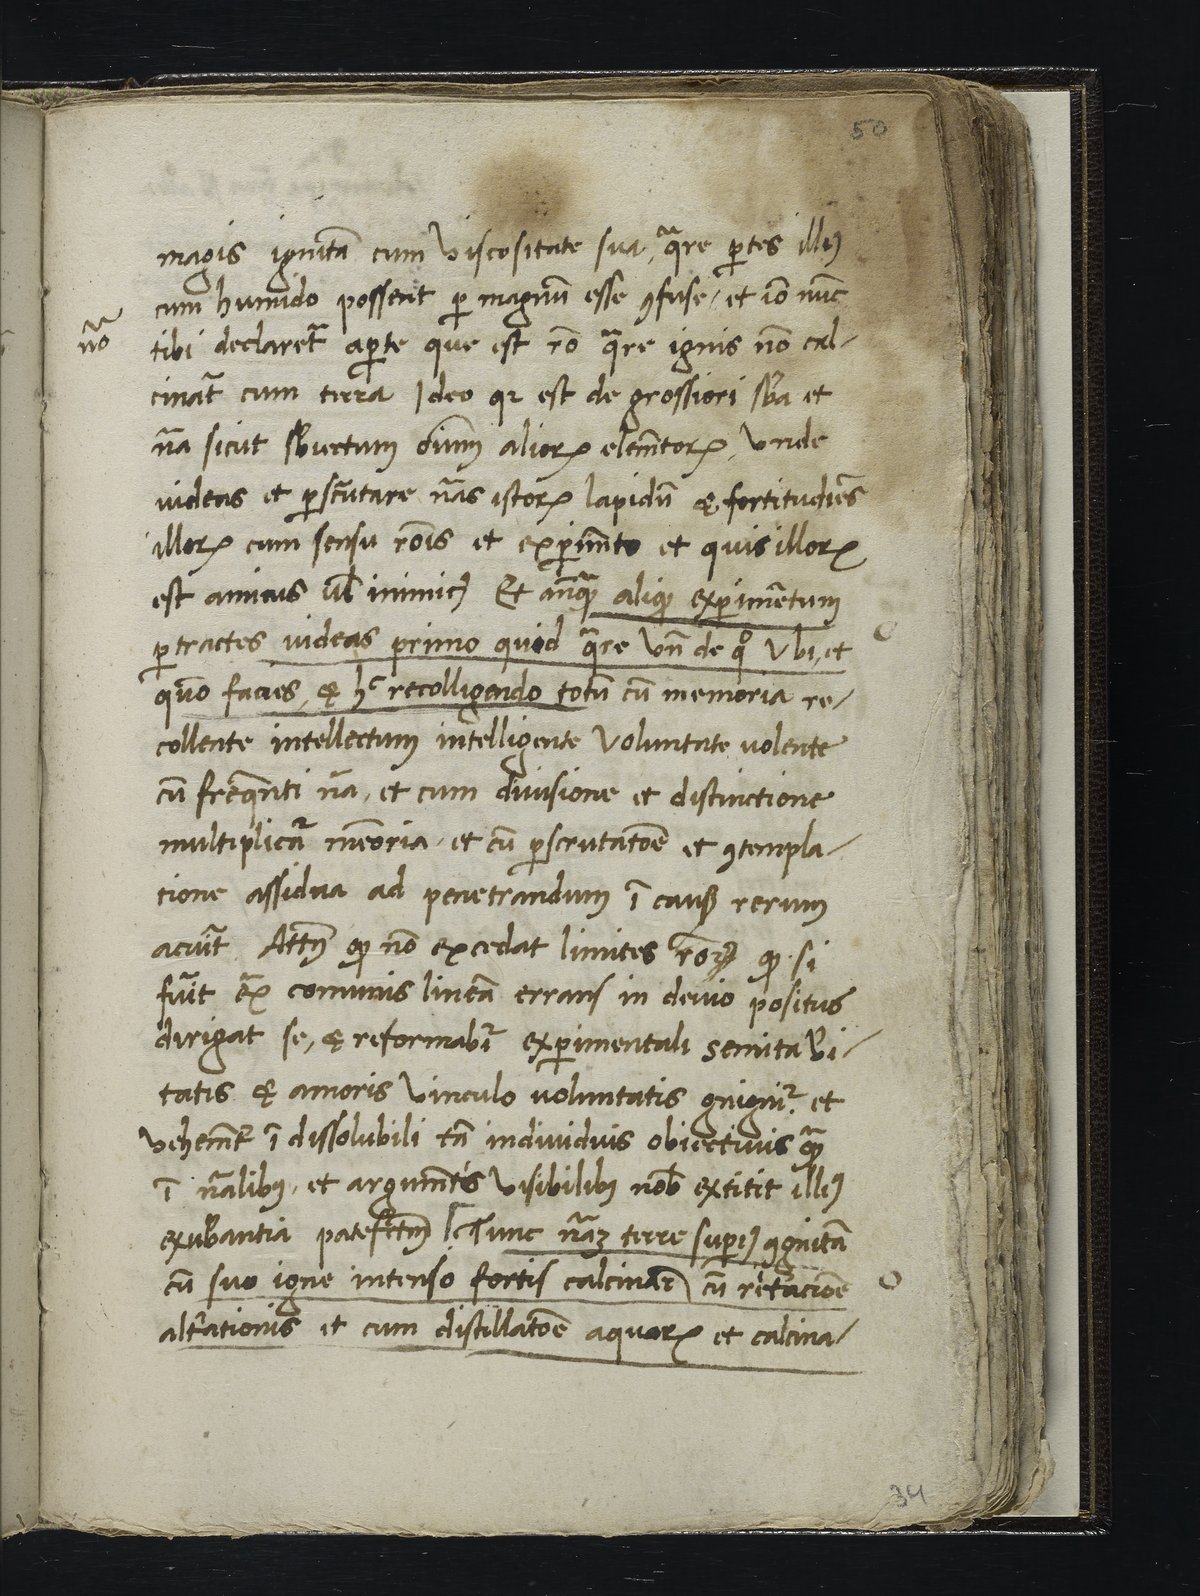 50
magis ignitā cum viscositate sua, q̄re ptes illꝰ
cum humido possent p magnū esse ꝯfuse, et iō nūc
nō
tibi declaretᷓ apte que est rō q̄re ignis nō cal-
cinat cum terra Ideo qꝛ est de grossiori sba et
nā sicut oīum alioꝝ elemētoꝝ, vnde
videas et pscrutare nās istoꝝ lapidū & fortitudīes
illoꝝ cum sensu rōis et expimēto et quis illoꝝ
est amicus vl inimicꝰ Et anteq̄ aliqđ expimētum
ptractes videas primo quid q̄re vn̄ de qͦ vbi, et
quō facies, & hͨ recolligendo totū cū memoria re-
collente intellectum intelligente voluntate volente
cū freq̄nti nā, et cum divisione et distinctione
multiplicat̄ memōria, et cū pscrutatōe et ꝯtempla-
tione assidua ad penetrandum ī causꝭ rerum
acuit Attn̄ qđ nō excedat limites rōis, qđ si
fuīt ex̄ comunis lineā errans in devio positus
dirigat se, & reformabit̄ expimentali semita vi-
tatis & amoris vinculo voluntatis gnignit̄. et
vehemēt̄ ī dissolubili tā individuis obiectivis q̄
ī nālibꝰ, et argumētis visibilibꝰ nōb extitit illꝰ
exubantia patefctm̄ Tunc nā terre supiꝰ ꝯgnitā
cū suo igne intenso fortis calcinat̄ cū
altationis et cum distillatōe aquaꝝ et calcina-
34